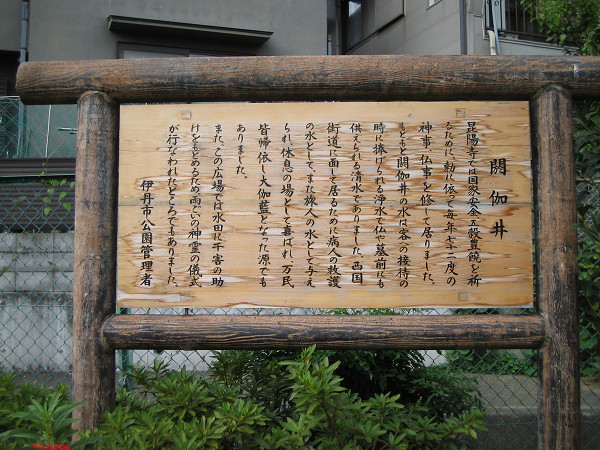 閼伽井
昆陽寺では国家安全五穀豊饒を祈
るために勅に依って毎年十二度の
神事、仏事を修して居りました。
もともと閼伽井の水は客の接待の
時に捧げられる浄水で仏や墓前にも
供えられる清水でありました。西国
街道に面し居るために病人の救護
の水としてまた旅人の水として与え
られ、休息の場として喜ばれ、万民
皆帰依し大伽藍となった源でも
ありました。
また、この広場では水田に干害の助
けをもとめるため、雨ごいの神霊の儀式
が行なわれたところでもありました。
伊丹市公園管理者